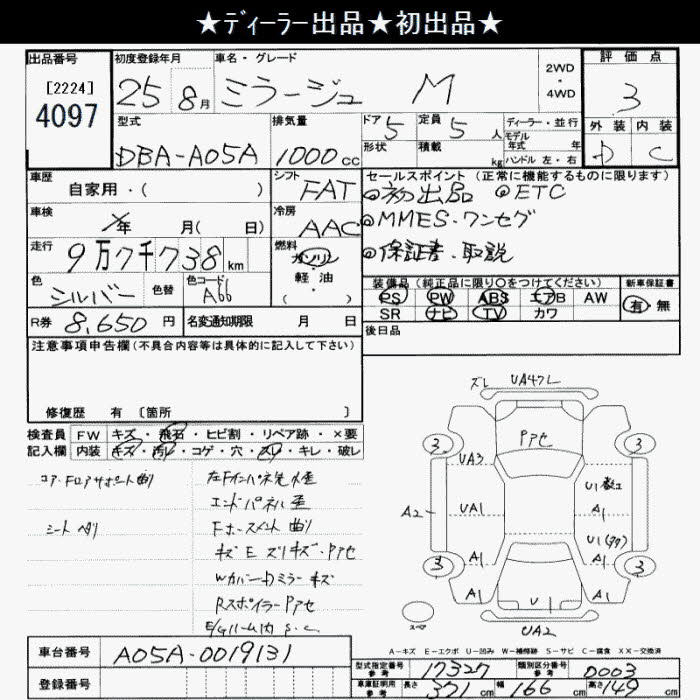 ★ディーラー出品★初出品★
出品番号
[2224]
4097
初度登録年月
25 8月
車名・グレード
ミラージュ M
2WD
・
4WD
評価点
3
外装 内装
D C
型式
DBA-A05A
排気量
1000cc
ドア 5
形状
定員 5人
積載 kg
ディーラー・並行
モデル年式 年
ハンドル 左・右
車歴
自家用・( )
シフト
FAT
セールスポイント (正常に機能するものに限ります)
◎初出品 ◎ETC
◎MMES・ワンセグ
◎保証書・取説
車検
年 月( 日)
冷房
AAC
走行
9万7千738km
燃料
ガソリン
軽油
( )
色
シルバー
色替
色コード
A66
装備品 (純正品に限り○をつけてください)
PS PW ABS エアB AW
SR ナビ TV カワ
新車保証書
有・無
R券 8,650円
名変通知期限 月 日
後日品
注意事項申告欄(不具合内容等は具体的に記入して下さい)
修復歴 有 [箇所 ]
検査員 FW キズ・飛石・ヒビ割・リペア跡・×要
記入欄 内装 キズ・汚レ・コゲ・穴・スレ・キレ・破レ
コア・Fロアサポート曲り
シート ヘタリ
エンドパネル歪
Fホースメント曲り
キズE ズリキズ・Pアセ
Wカバー・Dミラー キズ
RスポイラーPアセ
E/Gルーム内 S.C
ズレ UA47L
Pアセ
3 3
UA3
A2 UA1 A1
A1 A1
3 3
A1 A1
U1
UA2
スペア
A−キズ E−エクボ U−凹み W−補修跡 S−サビ C−腐食 XX−交換済
車台番号 A05A-0019131
型式指定番号 参考 17327
類別区分番号 参考 0003
車庫証明用 参考 長さ 371cm 幅 166cm 高さ 149cm